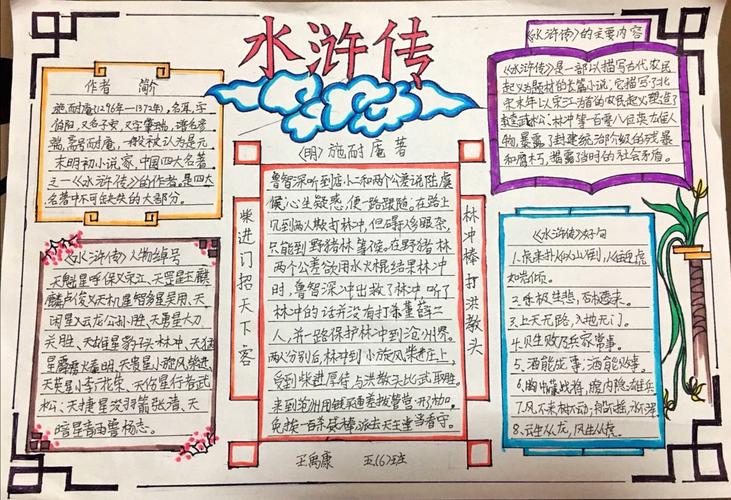 水浒传
〈明〉施耐庵著
作者 简介
施耐庵(1296年—1372年),名耳,字
伯阳,又名子安,又字肇瑞,谱名彦
端,号耐庵,一般被认为是元
末明初小说家,中国四大名著
之一《水浒传》的作者,是四大
名著中不可缺失的大部分。
《水浒传》的主要内容
《水浒传》是一部以描写古代农民
起义为题材的长篇小说,它描写了北
宋末年以宋江为首的农民起义,塑造了
武松、林冲等一百零八位英雄人
物,暴露了封建统治阶级的残暴
和腐朽,揭露当时的社会矛盾。
《水浒传》人物绰号
天魁星呼保义宋江、天罡星玉麒
麟卢俊义、天机星智多星吴用、天
闲星入云龙公孙胜、天勇星大刀
关胜、天雄星豹子头林冲、天猛
星霹雳火秦明、天贵星小旋风柴进、
天英星小李广花荣、天伤星行者武
松、天捷星没羽箭张清、天
暗星青面兽杨志。
柴进门招天下客
鲁智深听到店小二和两个公差说陆虞
候,心生疑惑,便一路跟随。在路上
见到两人欺打林冲,但碍人多眼杂,
只能到野猪林等候。在野猪林
两个公差欲用水火棍结果林冲
时,鲁智深冲出救了林冲,听了
林冲的话并没有打杀董薛二
人,并一路保护林冲到沧州界。
两人分别后,林冲到小旋风柴进庄上,
受到柴进厚待,与洪教头比武取胜。
来到沧州用钱买通差拨管营,
免挨一百杀威棒,派去天王堂当看守。
林冲棒打洪教头
《水浒传》好句
2、乐极生悲,否极泰来。
3、上天无路,入地无门。
4、见生败乃兵家常事。
5、酒能成事,酒能败事。
6、胸中藏战将,腹内隐雄兵
7、风不来树不动,船不摇,水不浑
8、云生从龙,风生从虎。
王禹康 五(6)班